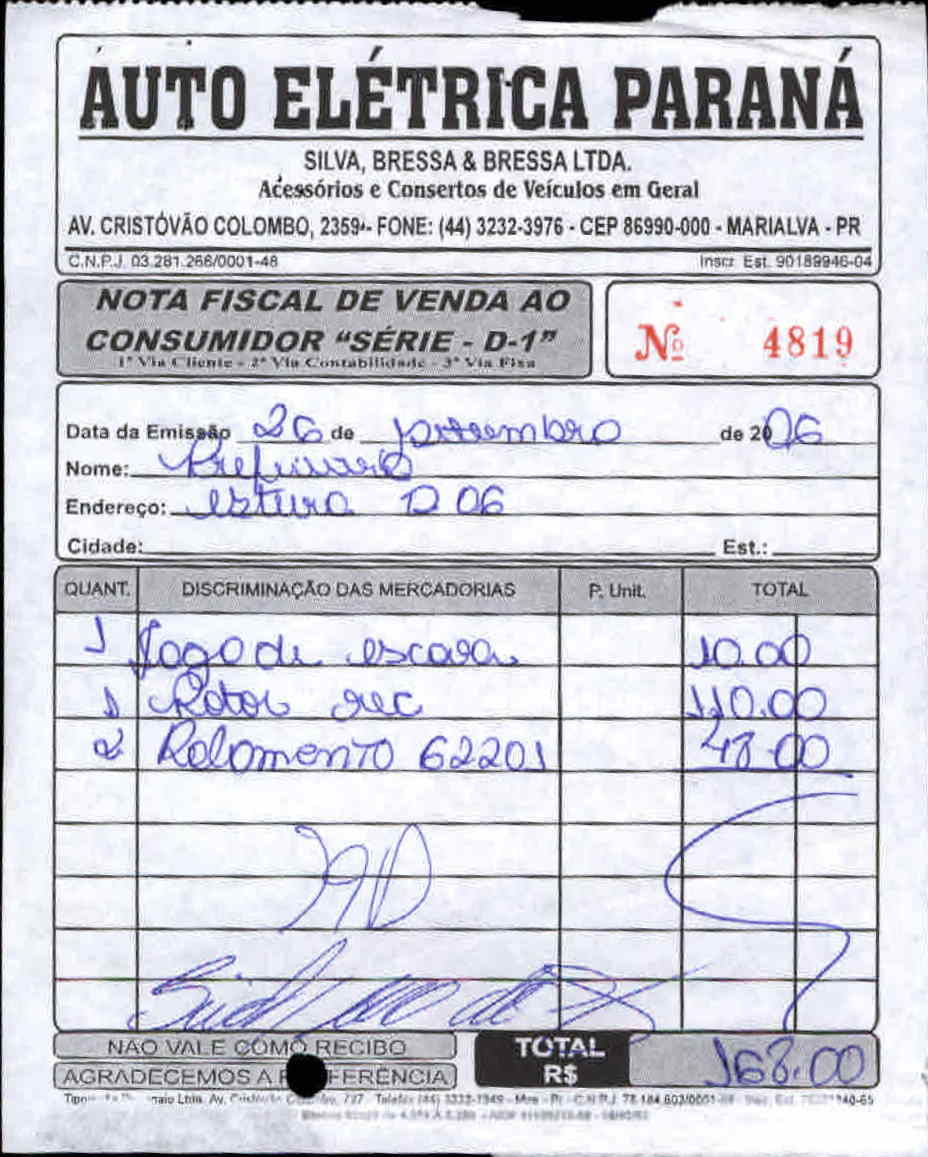 AUTO ELÉTRICA PARANÁ
SILVA, BRESSA & BRESSA LTDA.
Acessórios e Consertos de Veículos em Geral
AV. CRISTÓVÃO COLOMBO, 2359 - FONE: (44) 3232-3976 - CEP 86990-000 - MARIALVA - PR
C.N.P.J. 03.281.266/0001-48 Inscr. Est. 90189946-04
NOTA FISCAL DE VENDA AO
CONSUMIDOR "SÉRIE - D-1"
1ª Via Cliente - 2ª Via Contabilidade - 3ª Via Fixa
Nº 4819
Data da Emissão 26 de de 2006
Nome:
Endereço: D 06
Cidade: Est.:
QUANT. DISCRIMINAÇÃO DAS MERCADORIAS P. Unit. TOTAL
1 Jogo de escova 10.00
1 Rotor rec 110.00
2 Rolomento 62201 48.00
NÃO VALE COMO RECIBO
AGRADECEMOS A FERÊNCIA
TOTAL
R$ 168.00